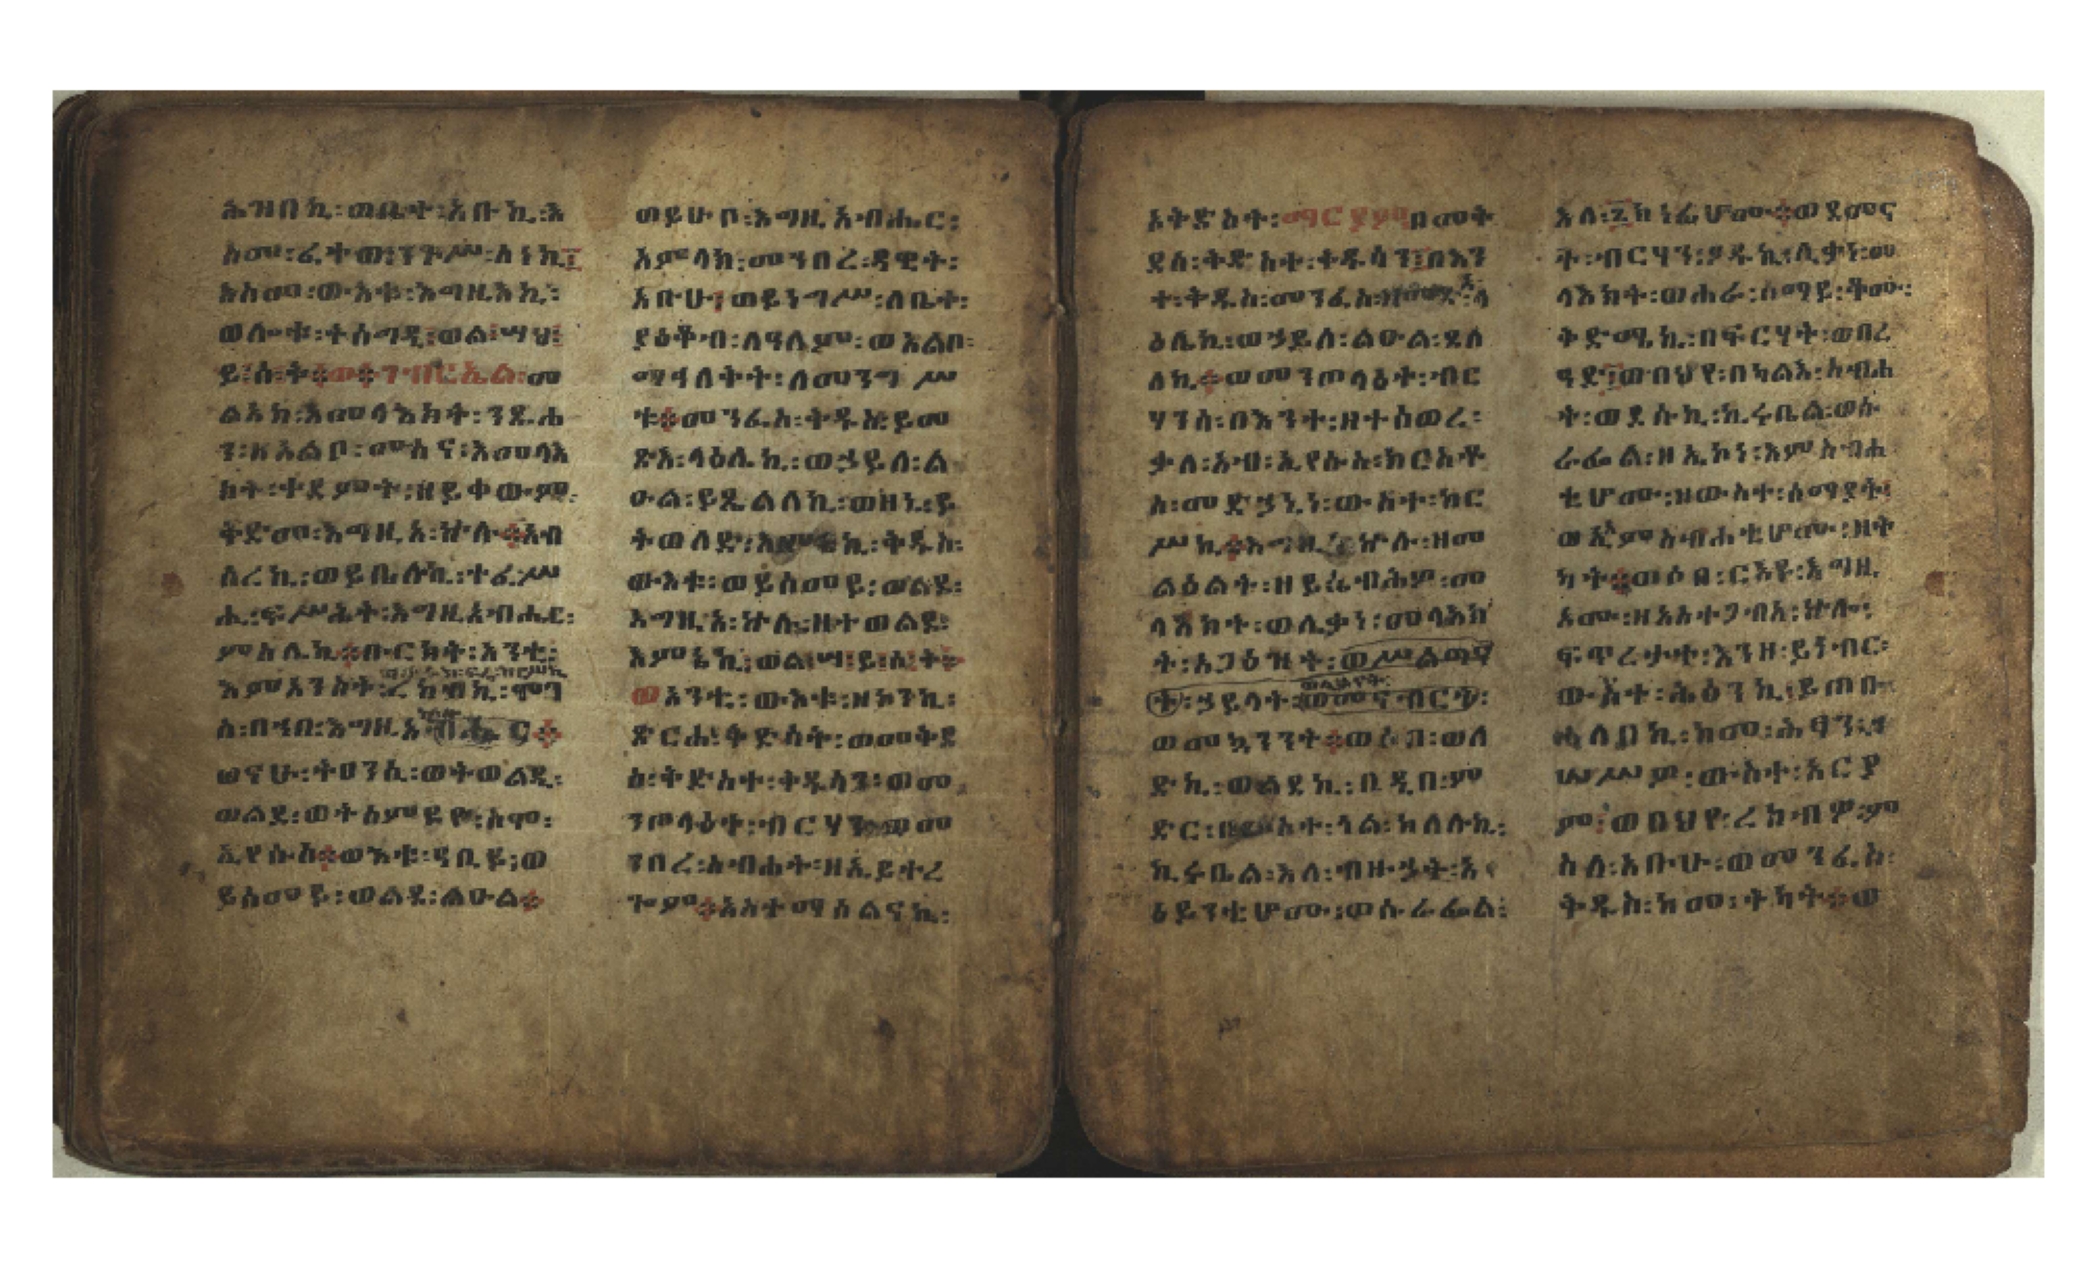 ሕዝበኪ፡ወቤተ፡አቡኪ፡እ
ስመ፡ፈተወ፡ንጉሥ፡ስነኪ፤
እስመ፡ውእቱ፡እግዚእኪ፡
ወሎቱ፡ተሰግዲ፡ወል፡ሣህ፡
ይ፡ስ፡ት፨ወ፨ገብርኤል፡መ
ልአክ፡እመላእክት፡ንጹሐ
ን፡ዘአልቦ፡ሙስና፡እመላእ
ክት፡ቀደምት፡ዘይቀውም፡
ቅድመ፡እግዚአ፡ኵሉ፨አብ
ሰረኪ፡ወይቤለኪ፡ተፈሥ
ሒ፡ፍሥሕት፡እግዚአብሔር፡
ምስሌኪ፨ቡርክት፡አንቲ፡
እምአንስት፡ረከብኪ፡ሞገ
ሰ፡በኀበ፡እግዚአብሔር፨
ወናሁ፡ትፀንሲ፡ወትወልዲ፡
ወልደ፡ወትሰምይዮ፡ስሞ፡
ኢየሱስ፨ወእቱ፡ዓቢይ፡ወ
ይሰመይ፡ወልደ፡ልዑል፨
ወይሁቦ፡እግዚአብሔር፡
አምላክ፡መንበረ፡ዳዊት፡
አቡሁ፤ወይነግሥ፡ለቤተ፡
ያዕቆብ፡ለዓለም፡ወአልቦ፡
ማኅለቅት፡ለመንግሥ
ቱ፨መንፈስ፡ቅዱስ፡ይመ
ጽእ፡ላዕሌኪ፡ወኃይለ፡ል
ዑል፡ይጼልለኪ፡ወዘኒ፡ይ
ትወለድ፡እምኔኪ፡ቅዱስ፡
ውእቱ፡ወይሰመይ፡ወልደ፡
እግዚአ፡ኵሉ፡ዘተወልደ፡
እምኔኪ፡ወል፡ሣ፡ይ፡ስ፡ት፨
ወአንቲ፡ውእቱ፡ዘኮንኪ፡
ጽርሐ፡ቅድሳት፡ወመቅደ
ሰ፡ቅድሳተ፡ቅዱሳን፡ወመ
ንጦላዕተ፡ብርሃን፡ወመ
ንበረ፡ስብሐት፡ዘኢይተረ
ጐም፨አስተማሰልናኪ፡
አትድእት፡ማርያምበመቅ
ደሰ፡ቅድሳተ፡ቅዱሳን፤በእን
ተ፡ቅዱስ፡መንፈስ፡ላ
ዕሌኪ፡ወኃይለ፡ልዑል፡ጸለ
ለኪ፨ወመንጦላዕተ፡ብር
ሃንሰ፡በእንተ፡ዘተሰወረ፡
ቃለ፡አብ፡ኢየሱስ፡ክርስቶ
ስ፡መድኃኒነ፡ውስተ፡ከር
ሥኪ፨እግዚአ፡ኵሉ፡ዘመ
ልዕልተ፡ዘይሴብሕዎ፡መ
ላእክት፡ወሊቃነ፡መላእክ
ት፡አጋዕዝት፡ወሥልጣና
ት፡ኃይላት፡ወመናብርት፡
ወመኳንንት፨ወረደ፡ወለ
ድኪ፡ወልደኪ፡በዲበ፡ም
ድር፡ውስተ፡ሳል፡ከለሉኪ፡
ኪሩቤል፡እለ፡ብዙኃት፡አ
ዕይንቲሆሙ፡ወሱራፌል፡
እለ፡፮ክነፊሆሙ፨ወደመና
ት፡ብርሃን፡ጸዱኪ፡ሊቃነ፡መ
ላእክት፡ወሐራ፡ሰማይ፡ቆሙ፡
ቅድሜኪ፡በፍርሃት፡ወበረ
ዓድ፤ወበህየ፡በካልእ፡ስብሐ
ት፡ወደሱኪ፡ኪሩቤል፡ወሱ
ራፌል፡ዘኢኮነ፡እምስብሐ
ቲሆሙ፡ዝውስተ፡ሰማያት፡
ወእምስብሐቲሆሙ፡ዘት
ካት፨ወሶበ፡ርእዩ፡እግዚ
አሙ፡ዘአስተጋብአ፡ኵሎ፡
ፍጥረታተ፡እንዘ፡ይነብር፡
ውስተ፡ሕፅንኪ፡ይጠቡ፡
ሐሊበኪ፡ከመ፡ሕፃን፡ኀ
ሠሥዎ፡ውስተ፡አርያ
ም፡ወበህየ፡ረከብዎ፡ም
ስለ፡አቡሁ፡ወመንፈስ፡
ቅዱስ፡ከመ፡ትካት፨ወ